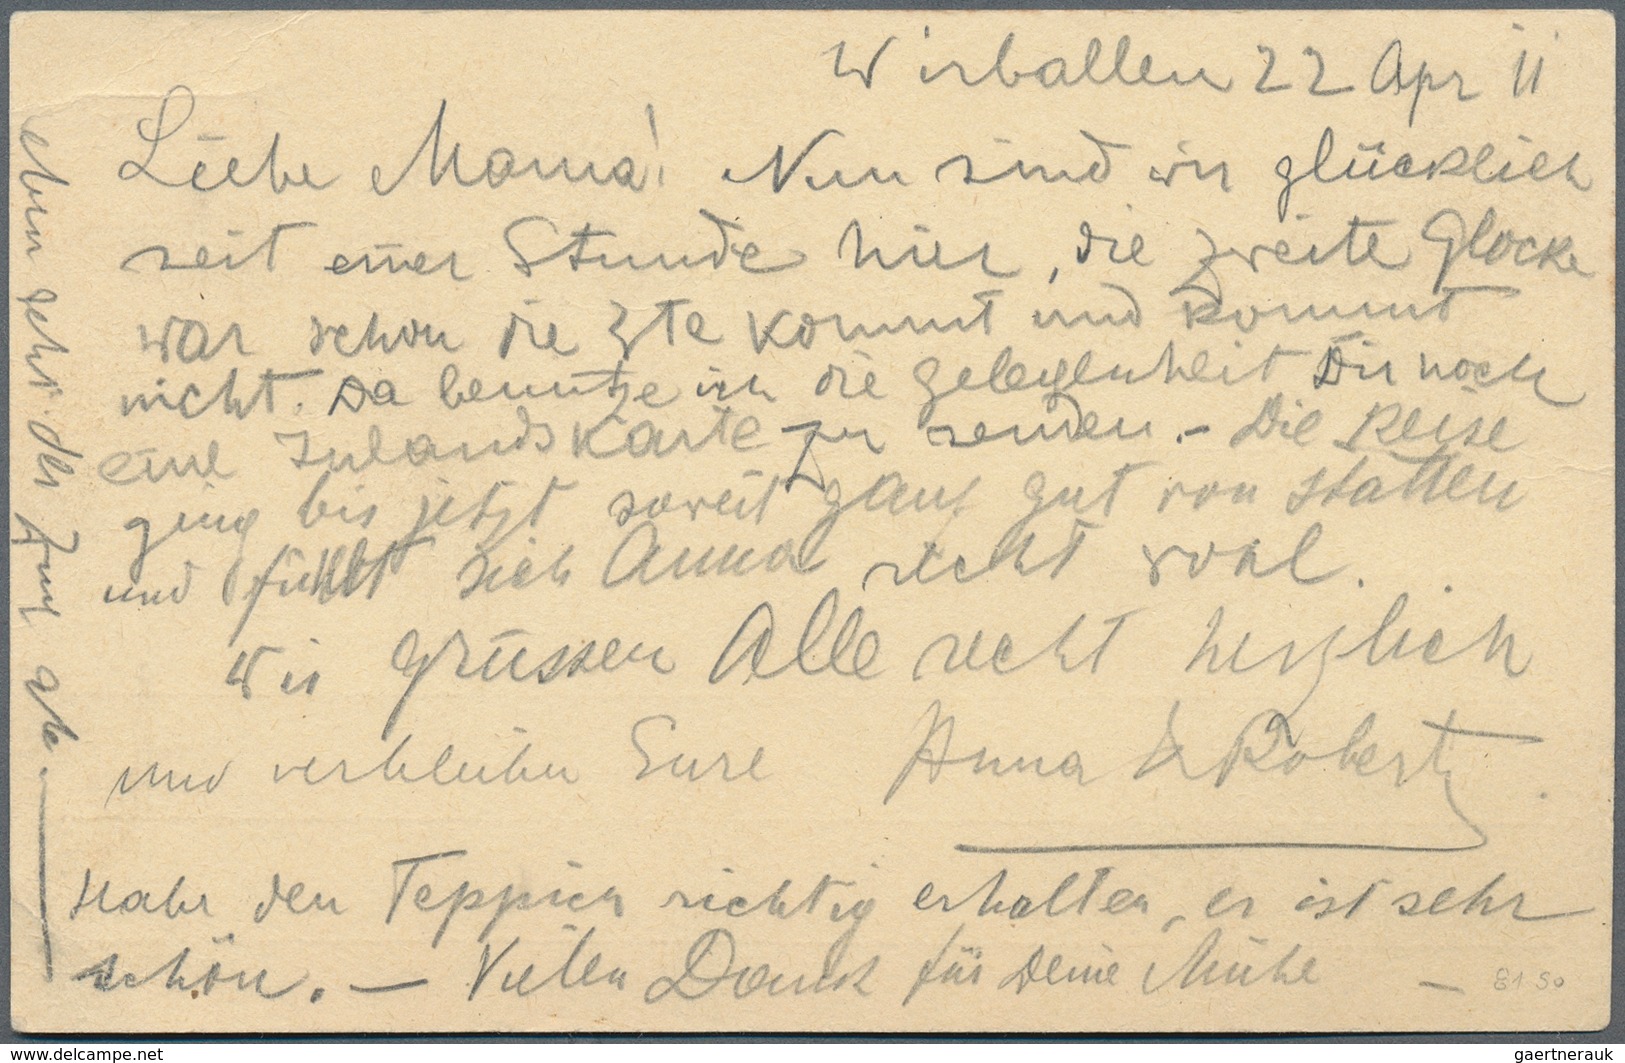 Wirballen 22 Apr 11
Liebe Mama! Nun sind wir glücklich
seit einer Stunde hier, die zweite Glocke
war schon die 3te kommt und kommt
nicht. Da benutze ich die Gelegenheit Dir noch
eine Inlandskarte zu senden. - Die Reise
ging bis jetzt soweit ganz gut von statten
und fühlt sich Anna recht wohl.
Wir grüssen Alle recht herzlich
und verbleiben Eure Anna & Robert.
Habe den Teppich richtig erhalten, er ist sehr
schön. — Vielen Dank für Deine Mühe —
eben geht der Zug ab.
8150
www.delcampe.net
gaertnerauk